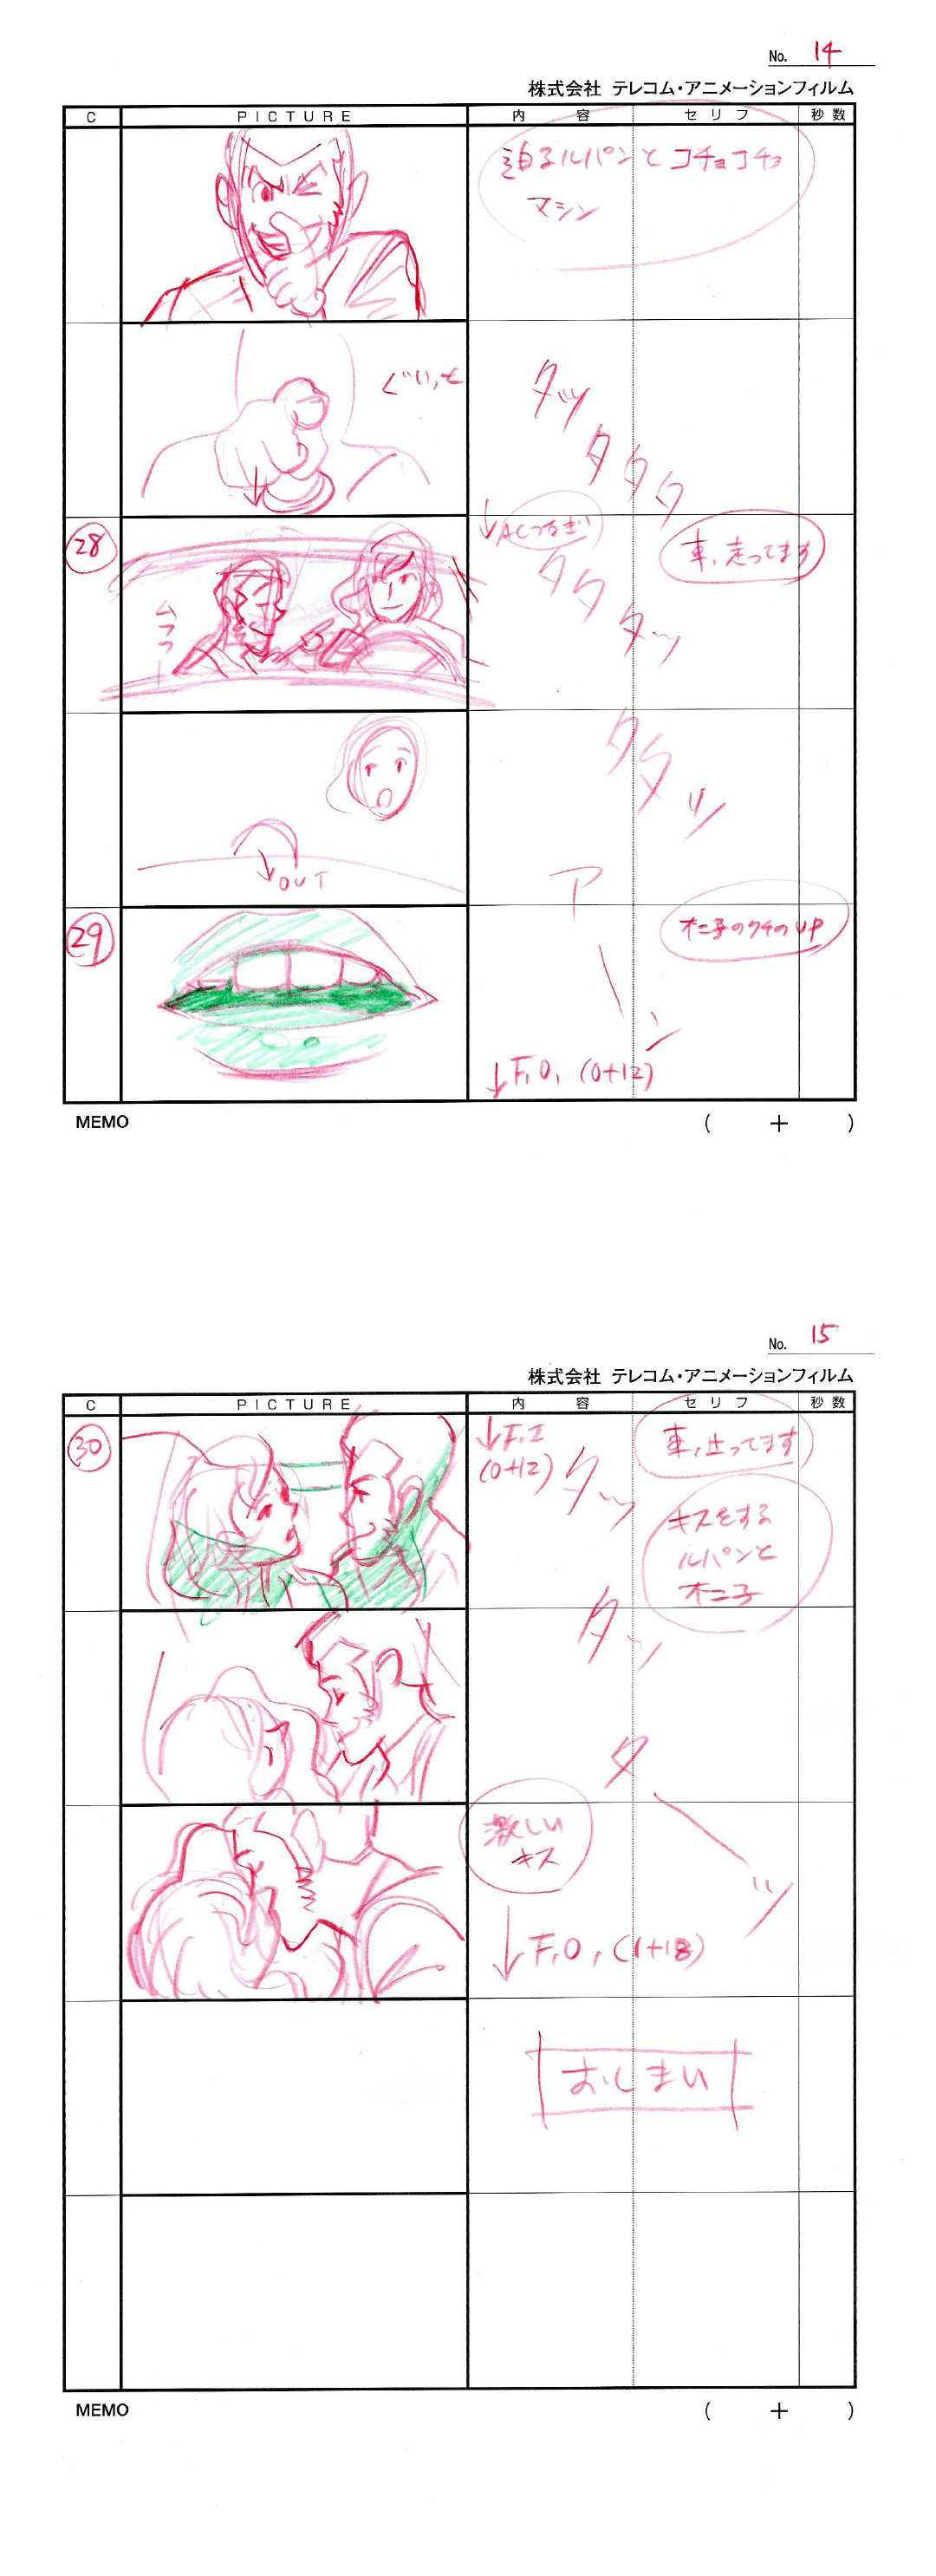 No. 14
株式会社 テレコム・アニメーションフィルム
C PICTURE 内容 セリフ 秒数
迫るルパンと コチョコチョ
マシン
ぐいっと
タッ
タタタ
28
↓ACつなぎ
車、走ってます
ムフフー
タタ
タッ
タタッ
↓OUT
ア
29
不二子のクチのUP
ーン
↓F.O. (0+12)
MEMO ( + )
No. 15
株式会社 テレコム・アニメーションフィルム
C PICTURE 内容 セリフ 秒数
30
↓F.I
(0+12)
タッ
車、止ってます
キスをする
ルパンと
不二子
タッ
タ
ーッ
激しい
キス
↓F.O. (1+18)
おしまい
MEMO ( + )